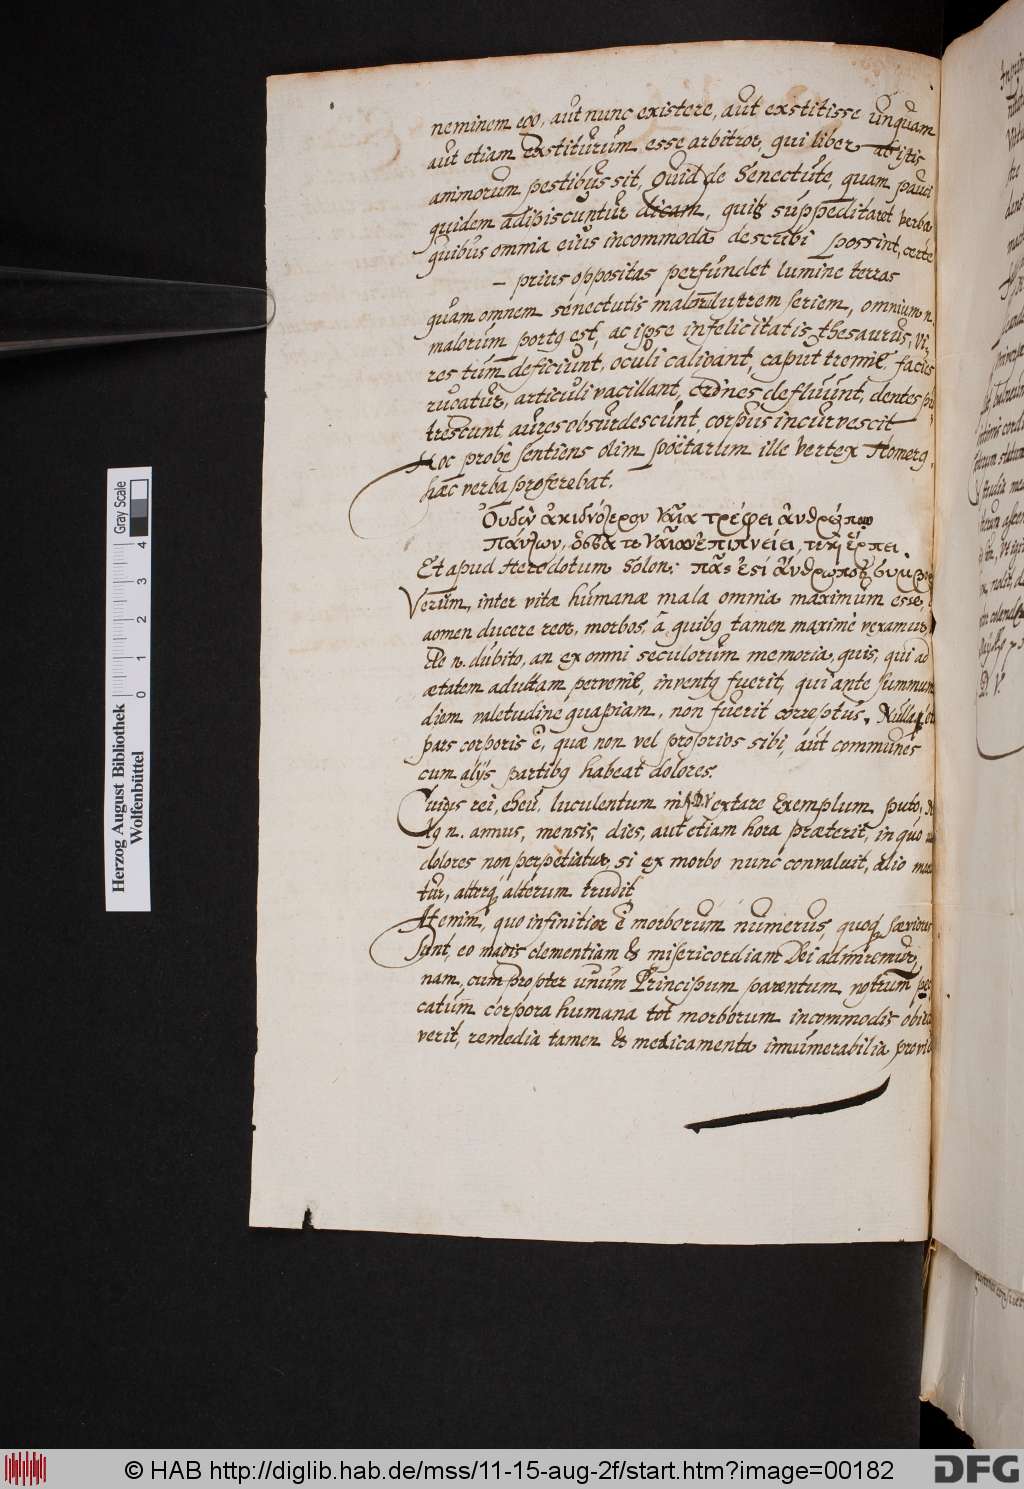 neminem ego, aut nunc existere, aut exstitisse unquam
aut etiam exstiturum esse arbitror, qui liber ab istis
animorum pestibus sit, Quid de Senectute, quam pauci
quidem adipiscuntur dicam, quis suppeditarot verba
quibus omnia eius incommoda describi possint, certe
– prius oppositas perfundet lumine terras
quam omnem senectutis malorum seriem, omnium n.
malorum portq est, ac ipse infelicitatis thesaurus, vi-
res tum deficiunt, oculi caligant, caput tremit, facies
rugatur, articuli vacillant, crines defluunt, dentes pu-
trescunt, aures obsurdescunt, corpus incurvescit
Hoc probè sentiens olim poëtarum ille vertex Homerq
hæc verba proferebat.
Ουδεν ἀκιδνότερον γαῖα τρέφει ἀνθρώποιο
πάντων, ὅσσα τε γαῖαν ἐπιπνείει, τε καὶ ἕρπει.
Et apud Herodotum Solon: πᾶς ἐστι ἄνθρωπος συμφορή
Verum, inter vitæ humanæ mala omnia maximum esse,
agmen ducere reor, morbos, â quibq tamen maximè vexamur,
Ne n. dubito, an ex omni seculorum memoria, quis, qui ad
ætatem adultam pervenit, inventq fuerit, qui ante summum
diem valetudine quapiam, non fuerit correptus. Nulla
pars corporis ê, quæ non vel proprios sibi, aut communes
cum alijs partibq habeat dolores.
Cuius rei, eheu, luculentum in extare exemplum puto,
n. annus, mensis, dies, aut etiam hora præterit, in quo
dolores non perpetiatur, si ex morbo nunc convaluit, alio
tur, alterq alterum trudit
At enim, quo infinitior ê morborum numerus, quoq sæviores
sunt, eo magis clementiam & misericordiam Dei admiremur,
nam, cum propter unum Principum parentum nostrum pec-
catum corpora humana tot morborum incommodis obie-
verit, remedia tamen & medicamenta innumerabilia
Herzog August Bibliothek
Wolfenbüttel
Gray Scale
0 1 2 3 4
© HAB http://diglib.hab.de/mss/11-15-aug-2f/start.htm?image=00182
DFG